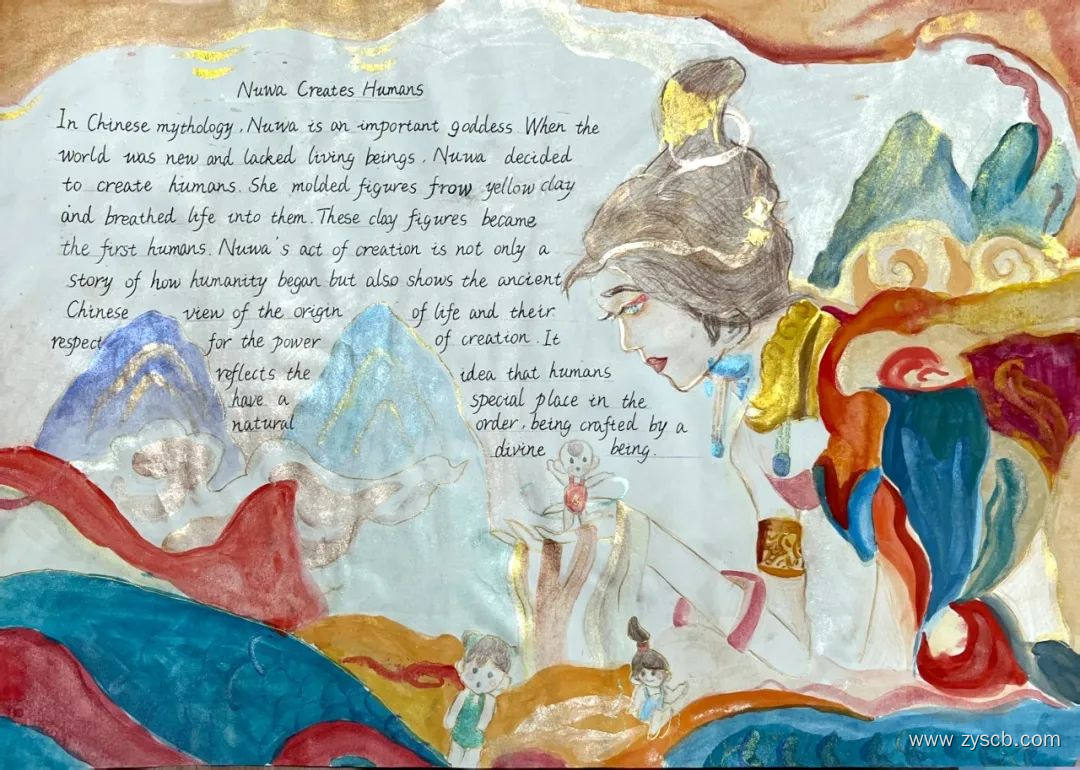 Nuwa Creates Humans
In Chinese mythology, Nuwa is an important goddess. When the
world was new and lacked living beings, Nuwa decided
to create humans. She molded figures from yellow clay
and breathed life into them. These clay figures became
the first humans. Nuwa's act of creation is not only a
story of how humanity began but also shows the ancient
Chinese view of the origin of life and their
respect for the power of creation. It
reflects the idea that humans
have a special place in the
natural order, being crafted by a
divine being.
www.zyscb.com